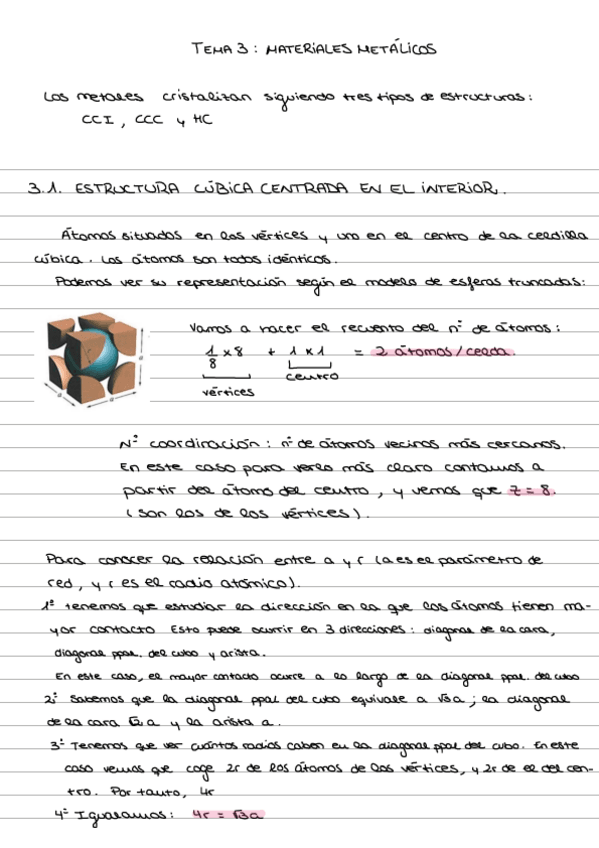 TEMA 3 : MATERIALES METÁLICOS
Los metales cristalizan siguiendo tres tipos de estructuras :
CCI , CCC y HC
3.1. ESTRUCTURA CÚBICA CENTRADA EN EL INTERIOR.
Átomos situados en los vértices y uno en el centro de la celdilla
cúbica. Los átomos son todos idénticos.
Podemos ver su representación según el modelo de esferas truncadas:
Vamos a hacer el recuento del nº de átomos :
1/8 x 8 + 1 x 1 = 2 átomos/celda.
vértices centro
a a a
Nº coordinación : nº de átomos vecinos más cercanos.
En este caso para verlo más claro contamos a
partir del átomo del centro, y vemos que z = 8.
(son los de los vértices).
Para conocer la relación entre a y r (a es el parámetro de
red, y r es el radio atómico).
1º tenemos que estudiar la dirección en la que los átomos tienen ma-
yor contacto Esto puede ocurrir en 3 direcciones : diagonal de la cara,
diagonal ppal. del cubo y arista.
En este caso, el mayor contacto ocurre a lo largo de la diagonal ppal. del cubo
2º Sabemos que la diagonal ppal del cubo equivale a √3a ; la diagonal
de la cara √2a y la arista a.
3º Tenemos que ver cuántos radios caben en la diagonal ppal del cubo. En este
caso vemos que coge 2r de los átomos de los vértices, y 2r de el del cen-
tro. Por tanto, 4r
4º Igualamos : 4r = √3a